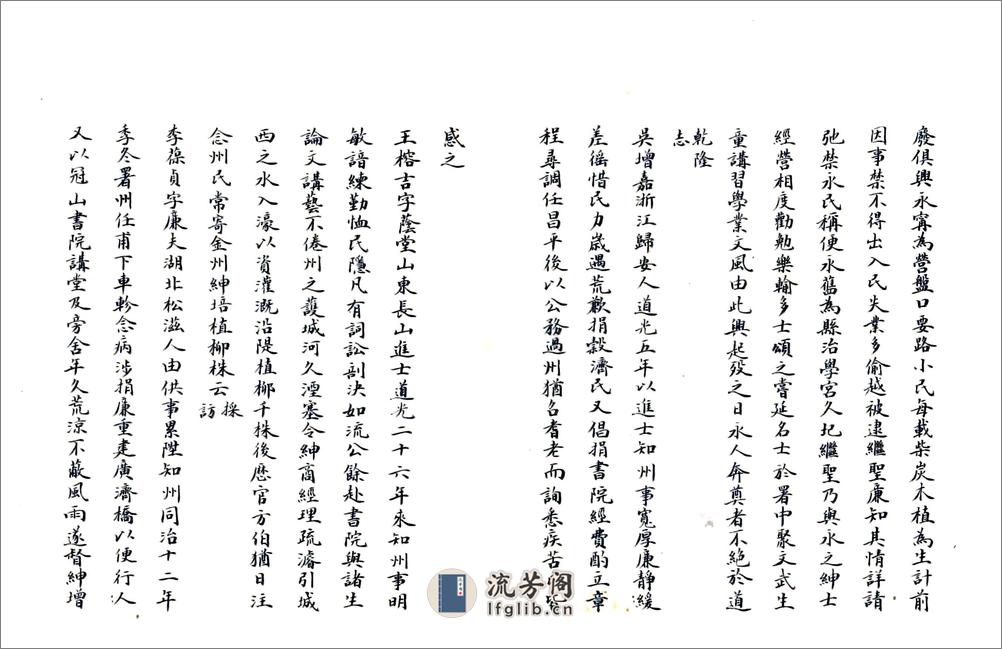 廢俱興永甯為營盤口要路小民每載柴炭木植為生計前
因事禁不得出入民失業多偷越被逮繼聖廉知其情詳請
弛禁永民稱便永舊為縣治學宮久圮繼聖乃與永之紳士
經營相度勸勉樂輸多士頌之嘗延名士於署中聚文武生
童講習學業文風由此興起歿之日永人奔奠者不絕於道
乾隆
志
吳增嘉浙江歸安人道光五年以進士知州事寬厚廉靜緩
差徭惜民力歲遇荒歉捐穀濟民又倡捐書院經費酌立章
程尋調任昌平後以公務過州猶名耆老而詢悉疾苦
感之
王榕吉字蔭堂山東長山進士道光二十六年來知州事明
敏諳練勤恤民隱凡有詞訟剖決如流公餘赴書院與諸生
論文講藝不倦州之護城河久湮塞令紳商經理疏濬引城
西之水入濠以資灌溉沿隄植柳千株後歷官方伯猶日注
念州民常寄金州紳培植柳株云
採
訪
李葆貞字廉夫湖北松滋人由供事累陞知州同治十二年
季冬署州任甫下車軫念病涉捐廉重建廣濟橋以便行人
又以冠山書院講堂及旁舍年久荒涼不蔽風雨遂督紳增
流芳阁
lfglib.cn